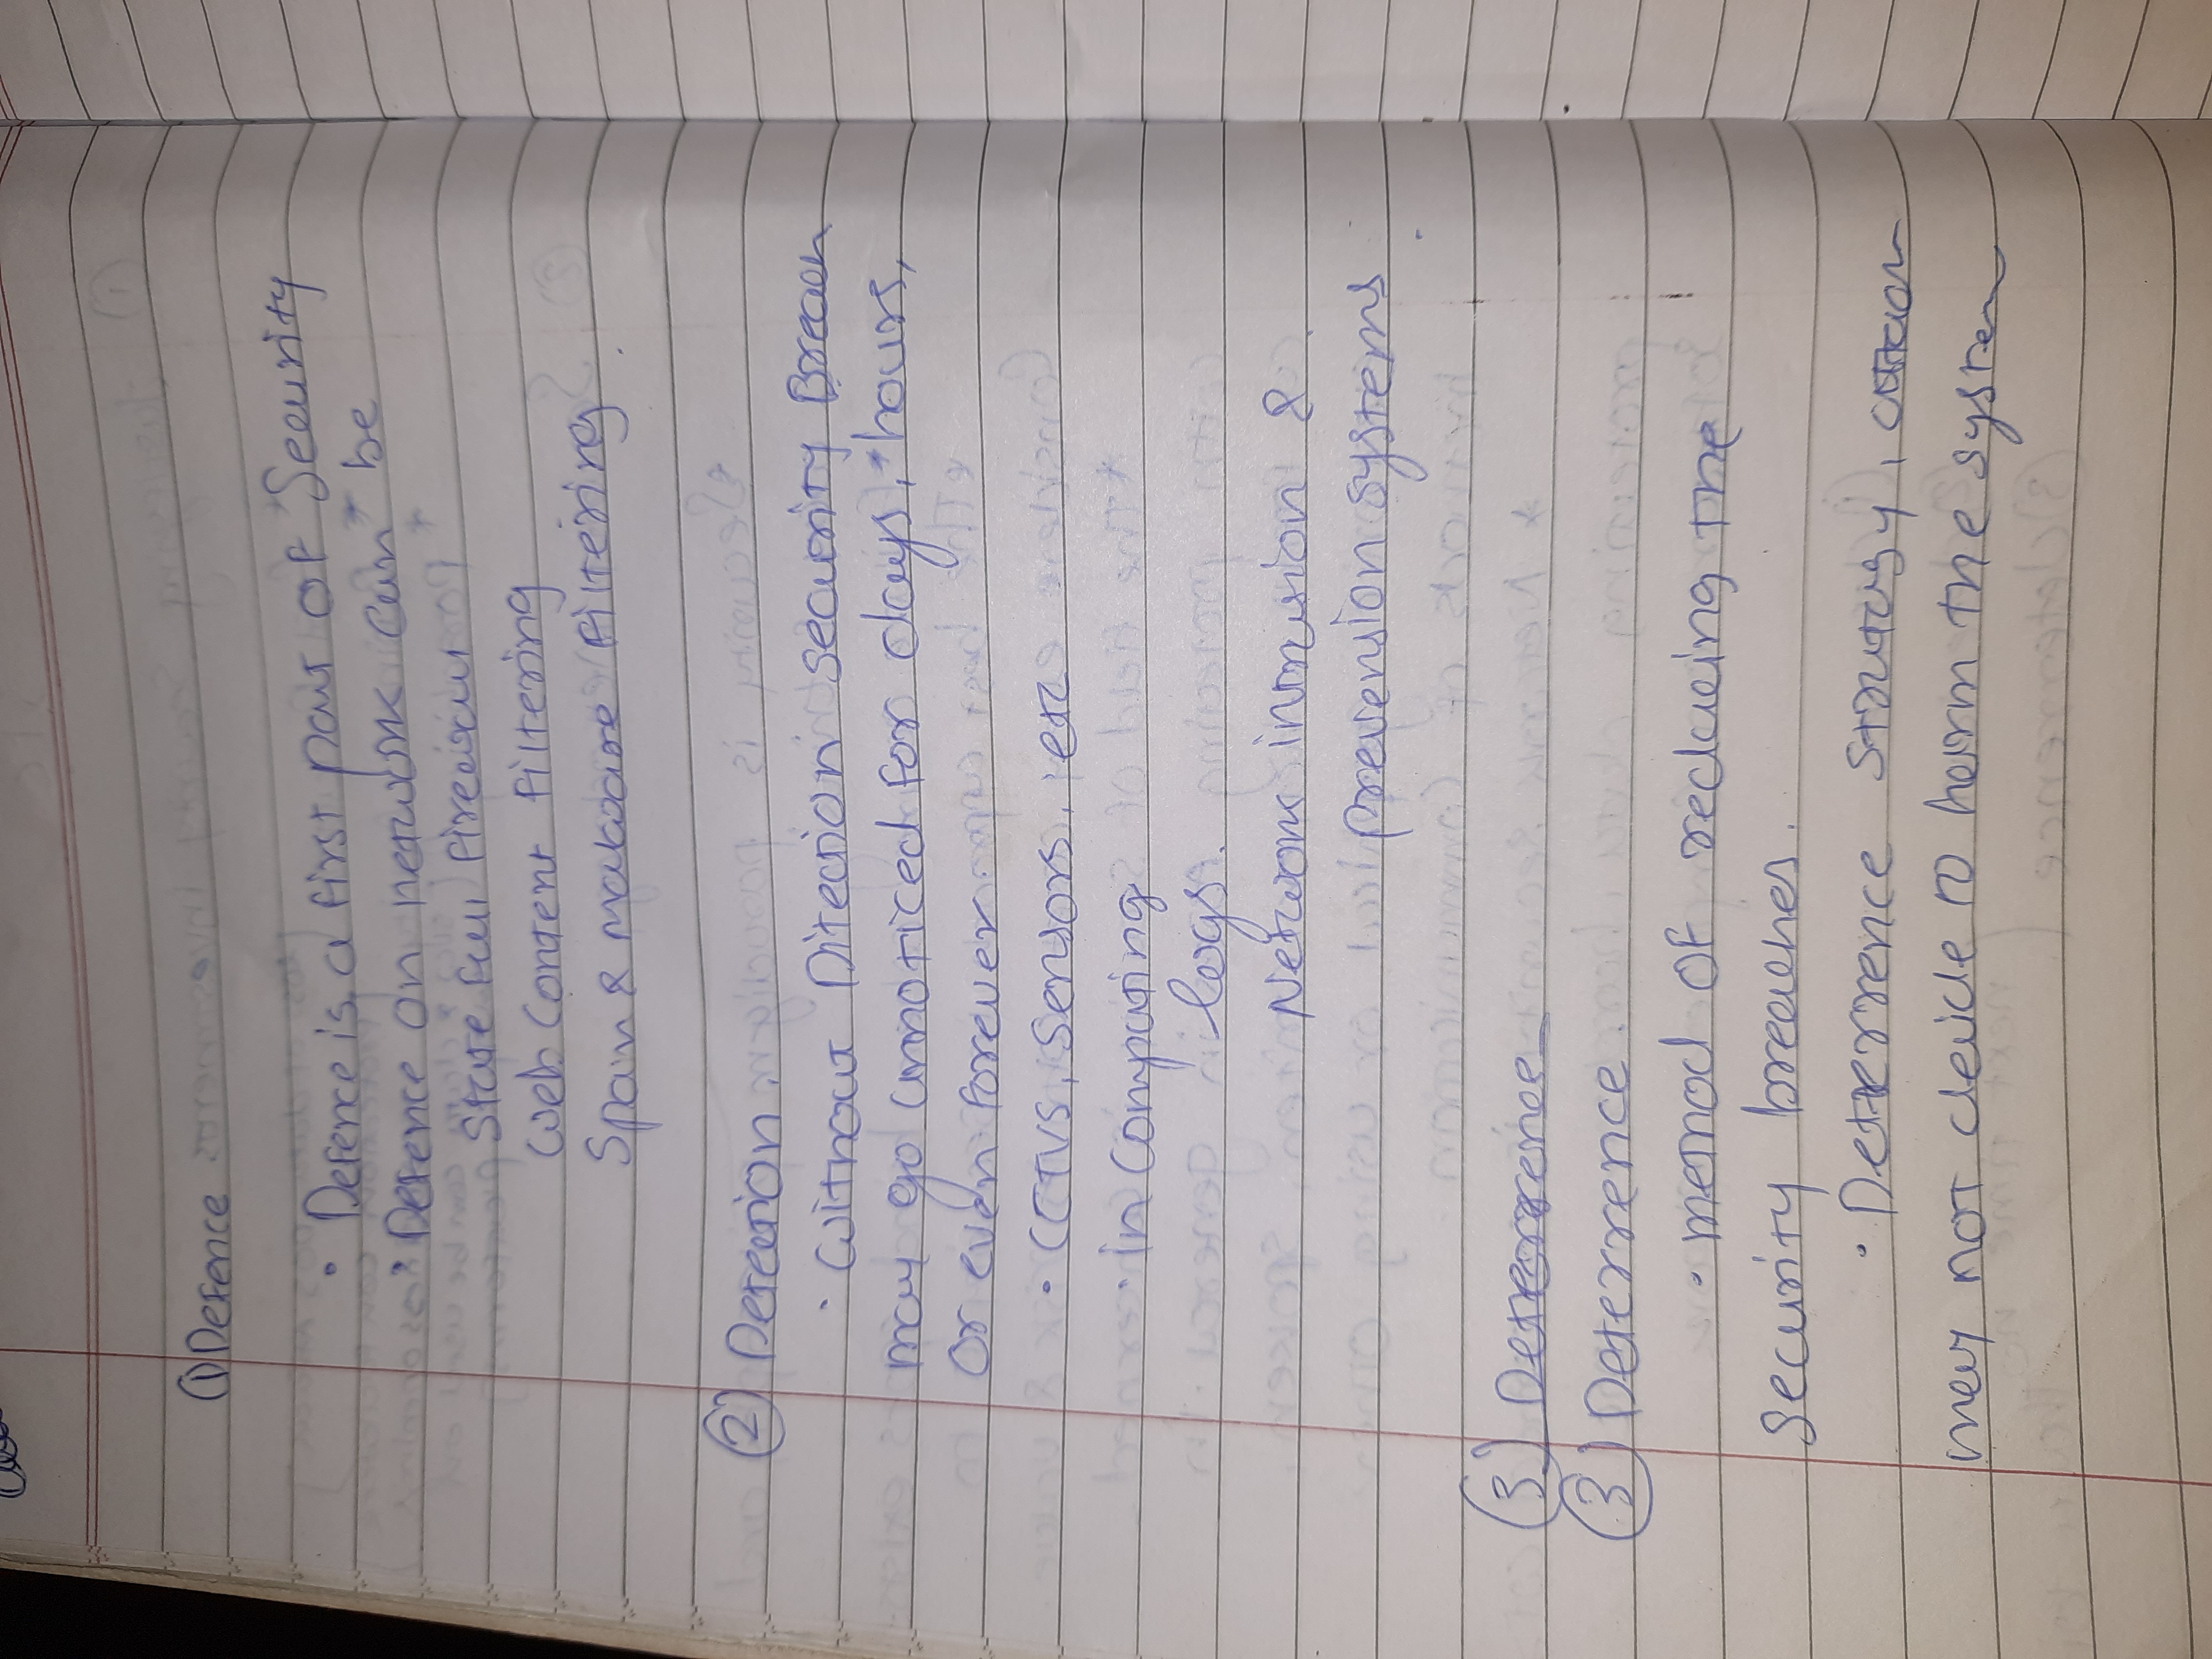 ① Defence
• Defence is a first part of Security
• Defence on network can be
State full firewall
Web Content filtering
Spam & malware filtering
② Detection
• Without Ditection security Breach
may go unnoticed for days, hours,
Or even forever.
• CCTVS, Sensors, etc
• in Computing
logs.
Network intrusion &
prevension systems
③ Deterrence
③ Deterrence
• method of reducing the
security breaches.
• Deterrence Stratagy,
may not decide to harm the system